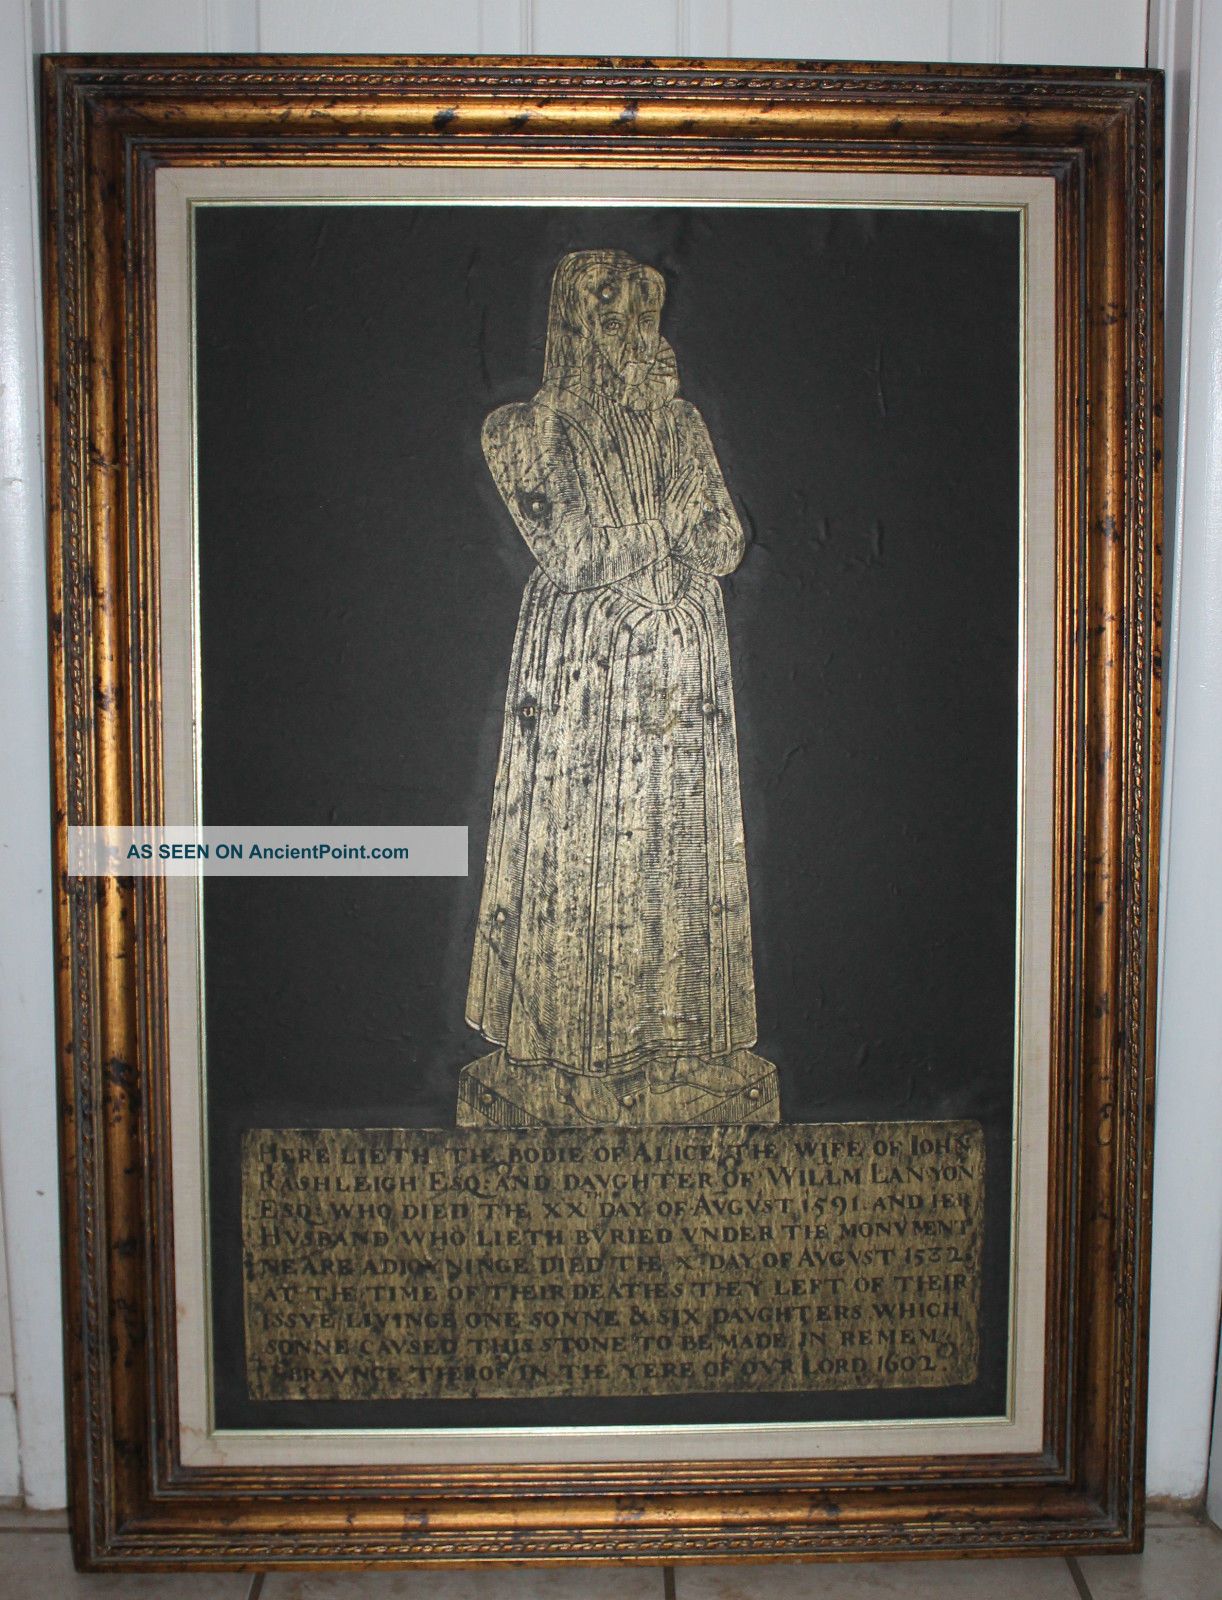 AS SEEN ON AncientPoint.com
HERE LIETH THE BODIE OF ALICE THE WIFE OF IOHN
RASHLEIGH ESQ: AND DAVGHTER OF WILLM LANYON
ESQ: WHO DIED THE XX DAY OF AVGVST 1591. AND HER
HVSBAND WHO LIETH BVRIED VNDER THE MONVMENT
NEARE ADIOYNINGE DIED THE X DAY OF AVGVST 1532.
AT THE TIME OF THEIR DEATHES THEY LEFT OF THEIR
ISSVE LIVINGE ONE SONNE & SIX DAVGHTERS WHICH
SONNE CAVSED THIS STONE TO BE MADE IN REMEM
BRAVNCE THEROF IN THE YERE OF OVR LORD 1602.